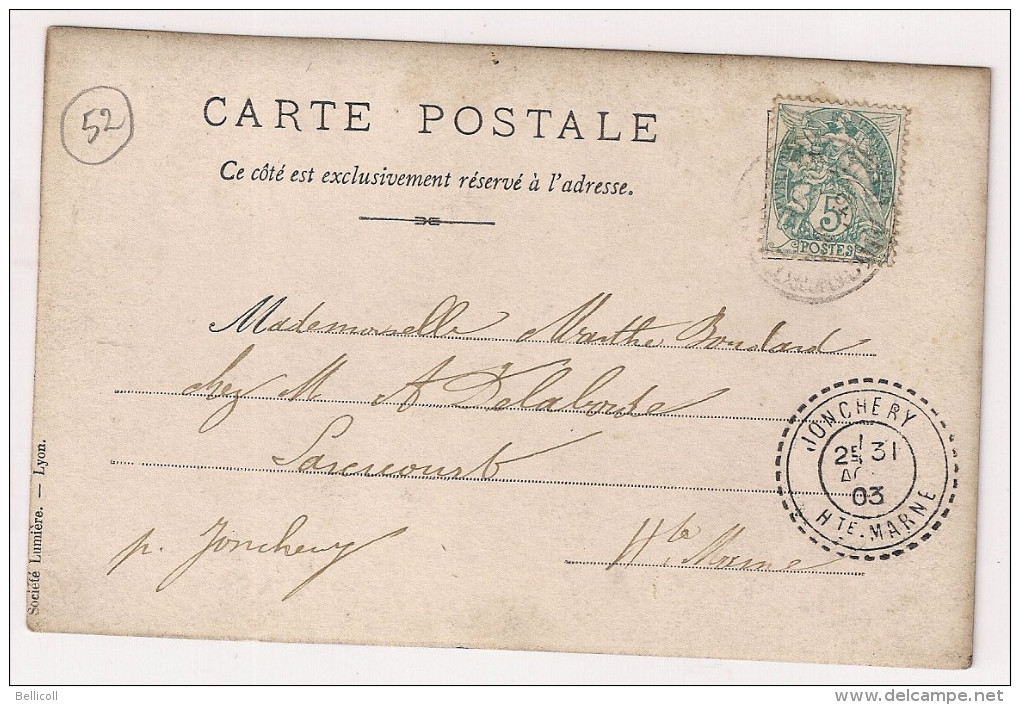 52
CARTE POSTALE
Ce côté est exclusivement réservé à l'adresse.
5
POSTES
Mademoiselle Marthe Boudard
chez M A Delaborde
Sarcicourt
p. Jonchery Hte Marne
JONCHERY
2E 31
03
HTE-MARNE
Société Lumière. — Lyon.
Bellicoll
www.delcampe.net